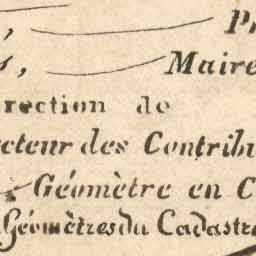 , Pr
s, Maire
rection de
cteur des Contribu
Géomètre en C
Géomètres du Cadastre